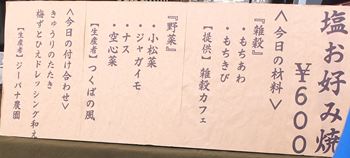 塩お好み焼
￥600
＜今日の材料＞
『雑穀』
・もちあわ
・もちきび
【提供】雑穀カフェ
『野菜』
・小松菜
・ジャガイモ
・ナス
・空心菜
【生産者】つくばの風
＜今日の付け合わせ＞
きゅうりのたたき
梅ずとひえドレッシング和え
【生産者】ジーバナ農園